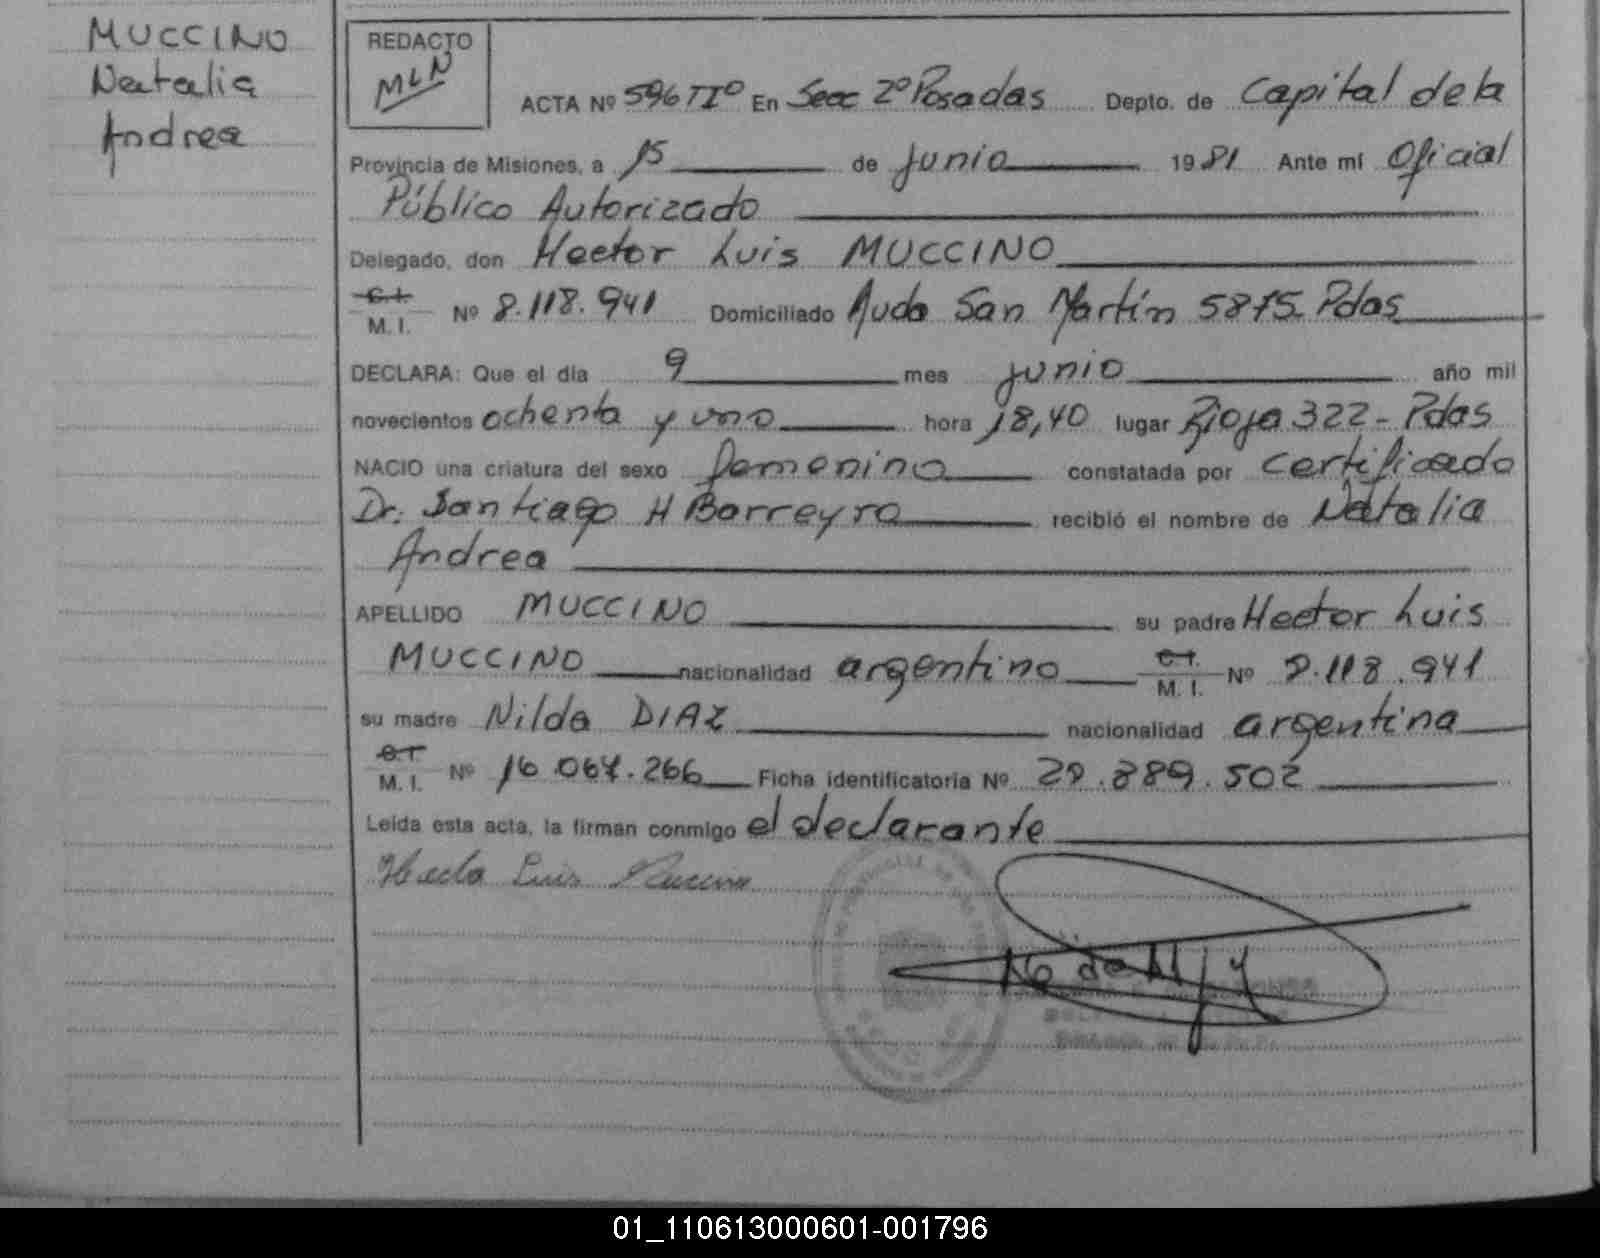 MUCCINO
Natalia
Andrea
REDACTO
MLN
ACTA Nº 596 TIº En Secc 2º Posadas Depto. de Capital de la
Provincia de Misiones, a 15 de junio 1981 Ante mi Oficial
Público Autorizado
Delegado, don Hector Luis MUCCINO
C.I.
M. I. Nº 8.118.941 Domiciliado Avda San Martín 5875 Pdas
DECLARA: Que el dia 9 mes junio año mil
novecientos ochenta y uno hora 18,40 lugar Rioja 322 - Pdas
NACIO una criatura del sexo femenino constatada por certificado
Dr. Santiago H Barreyro recibió el nombre de Natalia
Andrea
APELLIDO MUCCINO su padre Hector Luis
MUCCINO nacionalidad argentino C.I.
M. I. Nº 8.118.941
su madre Nilda DIAZ nacionalidad argentina
C.I.
M. I. Nº 16.064.266 Ficha identificatoria Nº 28.889.502
Leida esta acta, la firman conmigo el declarante
Hector Luis Muccino
01_110613000601-001796